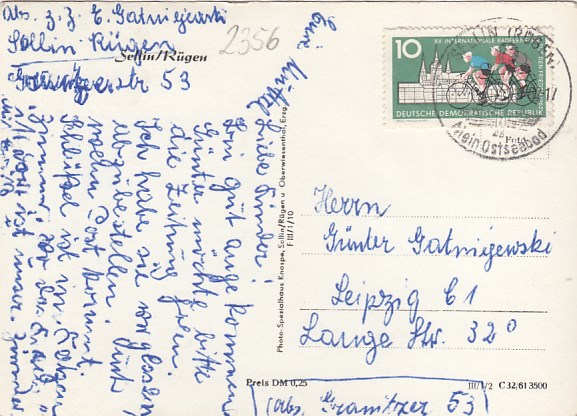 Abs. z. Z. E. Gatniejewski
Sellin Rügen
Sellin/Rügen
Granitzerstr 53
2356
Eure Mutter
Liebe Kinder!
Bin gut angekommen
Günter möchte bitte
die Zeitung holen.
Ich habe sie vergessen
abzubestellen. Und
wenn Post kommt.
Schlüssel ist im
Photo-Spezialhaus Knospe, Sellin/Rügen u. Oberwiesenthal, Erzg.
F III/1/10
10
XV. INTERNATIONALE RADFERNFAHRT
DEUTSCHE DEMOKRATISCHE REPUBLIK
SELLIN (RÜGEN)
Dein Ostseebad
Herrn
Günter Gatniejewski
Leipzig C1
Lange Str. 32
Preis DM 0,25
III/1/2 C 32/61 3500
(Abs. Granitzer 53)